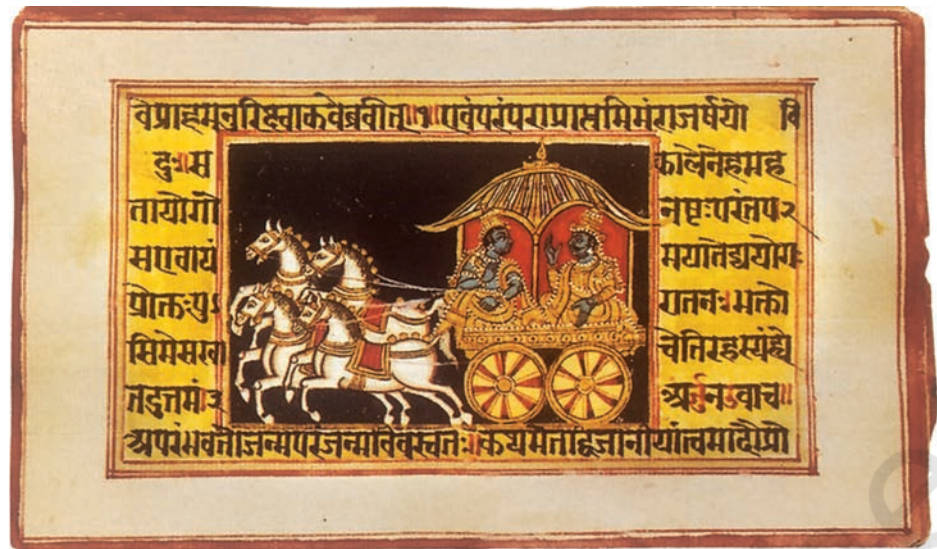 वेप्राहमनुरिक्ष्वाकवेब्रवीत्॥१॥एवंपरंपराप्राप्तमिमंराजर्षयो वि
दुः॥स कालेनेहमह
तायोगो नष्टःपरंतप२
सएवायं मयातेद्ययोगः
प्रोक्तःपु रातनः॥भक्तो
सिमेसखा चेतिरहस्यंह्ये
तदुत्तमं॥३ अर्जुनउवाच॥
अपरंभवतोजन्मपरंजन्मविवस्वतः॥कथमेतद्विजानीयांत्वमादौप्रो